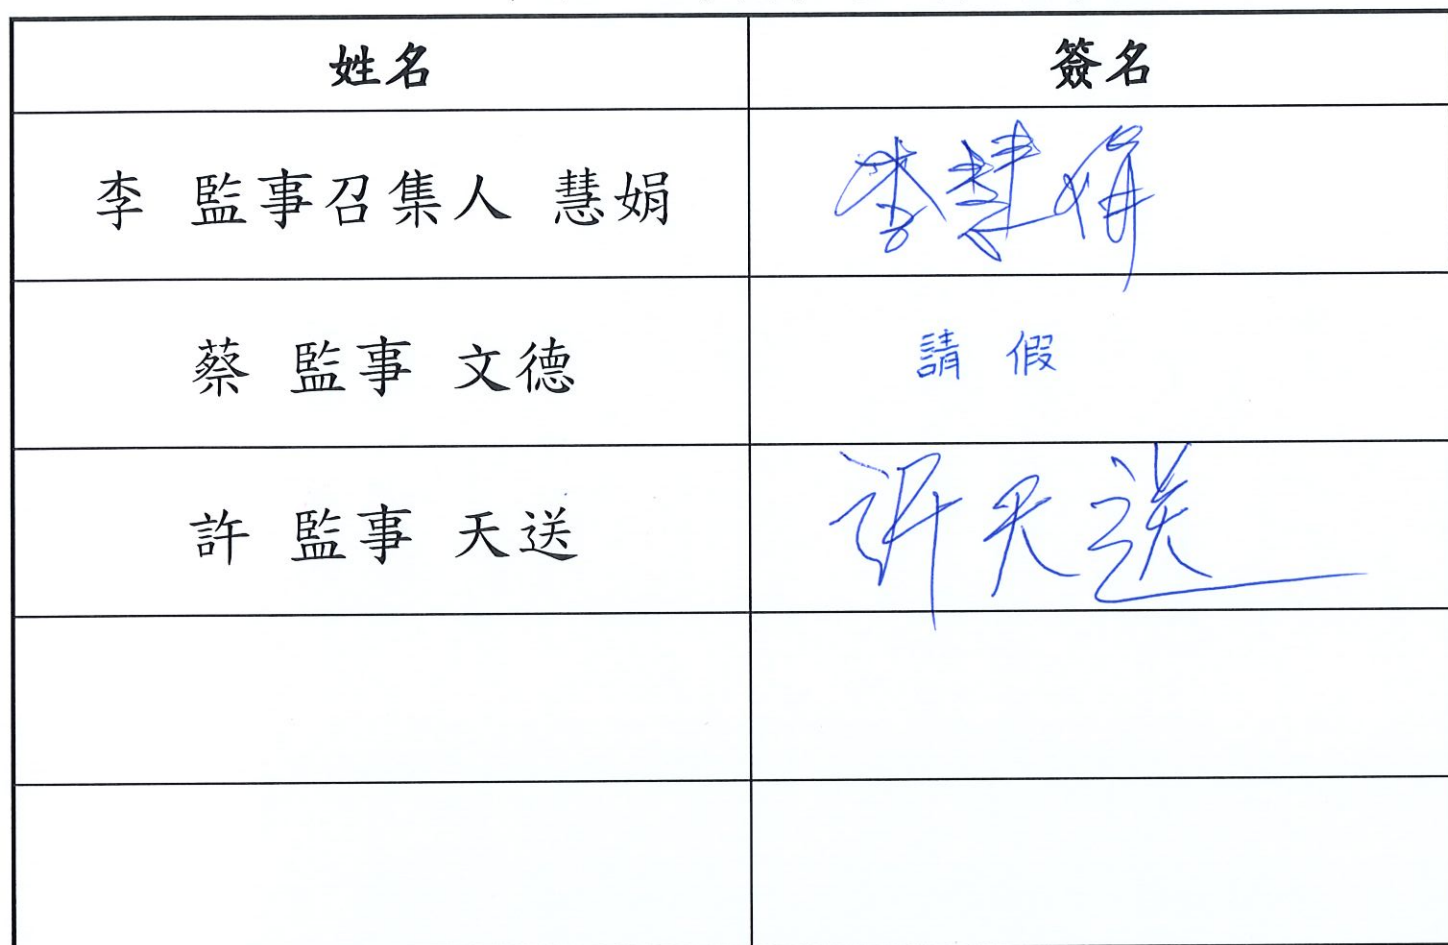 姓名 簽名
李 監事召集人 慧娟 李慧娟
蔡 監事 文德 請假
許 監事 天送 許天送